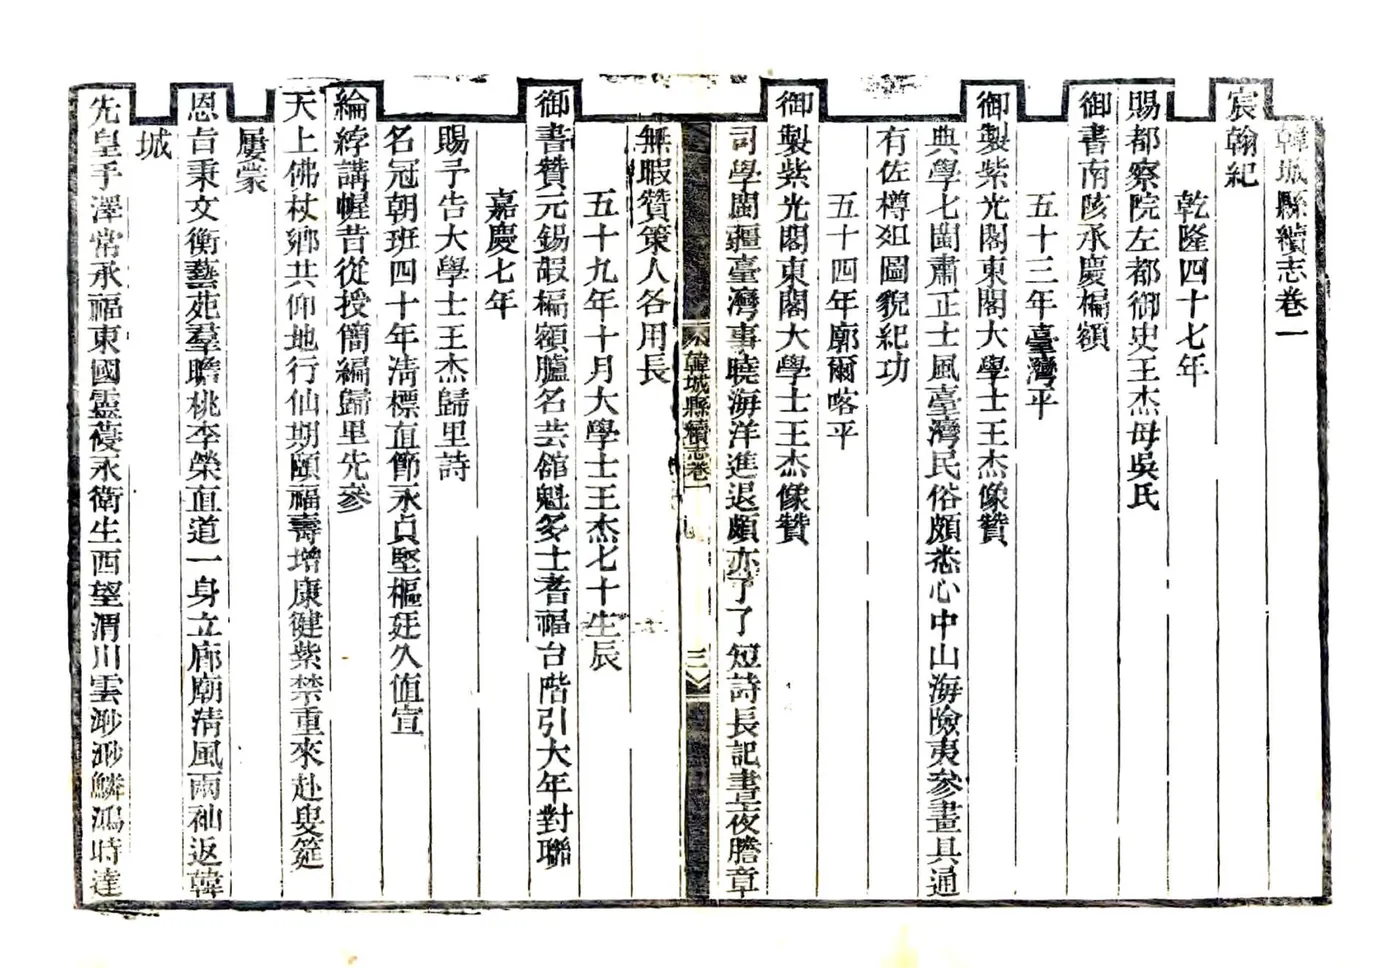 韓城縣續志卷一
宸翰紀
乾隆四十七年
賜都察院左都御史王杰母吳氏
御書南陔承慶楄額
五十三年臺灣平
御製紫光閣東閣大學士王杰像贊
典學七閩肅正士風臺灣民俗頗悉心中山海險夷參畫具通
有佐樽俎圖貌紀功
五十四年廓爾喀平
御製紫光閣東閣大學士王杰像贊
司學閩疆臺灣事曉海洋進退頗亦了了短詩長記晝夜謄章
韓城縣續志卷一
三
無暇贊策人各用長
五十九年十月大學士王杰七十生辰
御書贊元錫嘏楄額臚名芸舘魁多士耆福台階引大年對聯
嘉慶七年
賜予告大學士王杰歸里詩
名冠朝班四十年清標直節永貞堅樞廷久值宣
綸綍講幄昔從授簡編歸里先參
天上佛杖鄉共仰地行仙期頤福壽增康健紫禁重來赴叟筵
屢蒙
恩旨秉文衡藝苑羣瞻桃李榮直道一身立廊廟清風兩袖返韓
城
先皇手澤常承福東國靈蓡永衛生西望渭川雲渺渺鱗鴻時達